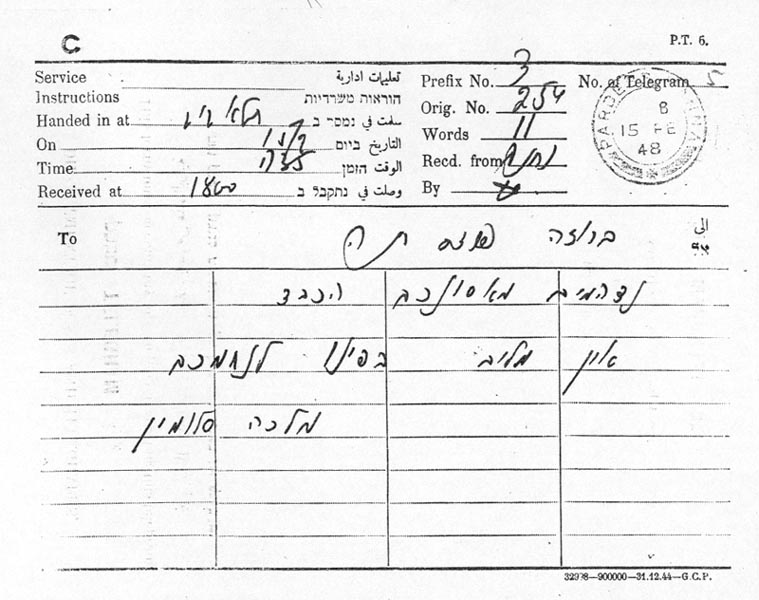 C
P.T. 6.
Service تعليمات ادارية
Instructions הוראות משרדיות
Handed in at תל אביב سلمت في נמסר ב
On 15/2 التاريخ ביום
Time 1735 الوقت הזמן
Received at 1800 وصلت في נתקבל ב
Prefix No. 3 No. of Telegram
Orig. No. 254
Words 11
Recd. from
By
PARDES HANNA
8
15 FE
48
To ברוזה פרדס الى
אל
נדהמים מאסונכם הכבד
אין מלים בפינו לנחמכם
מלכה סלומין
32978—900000—31.12.44—G.C.P.